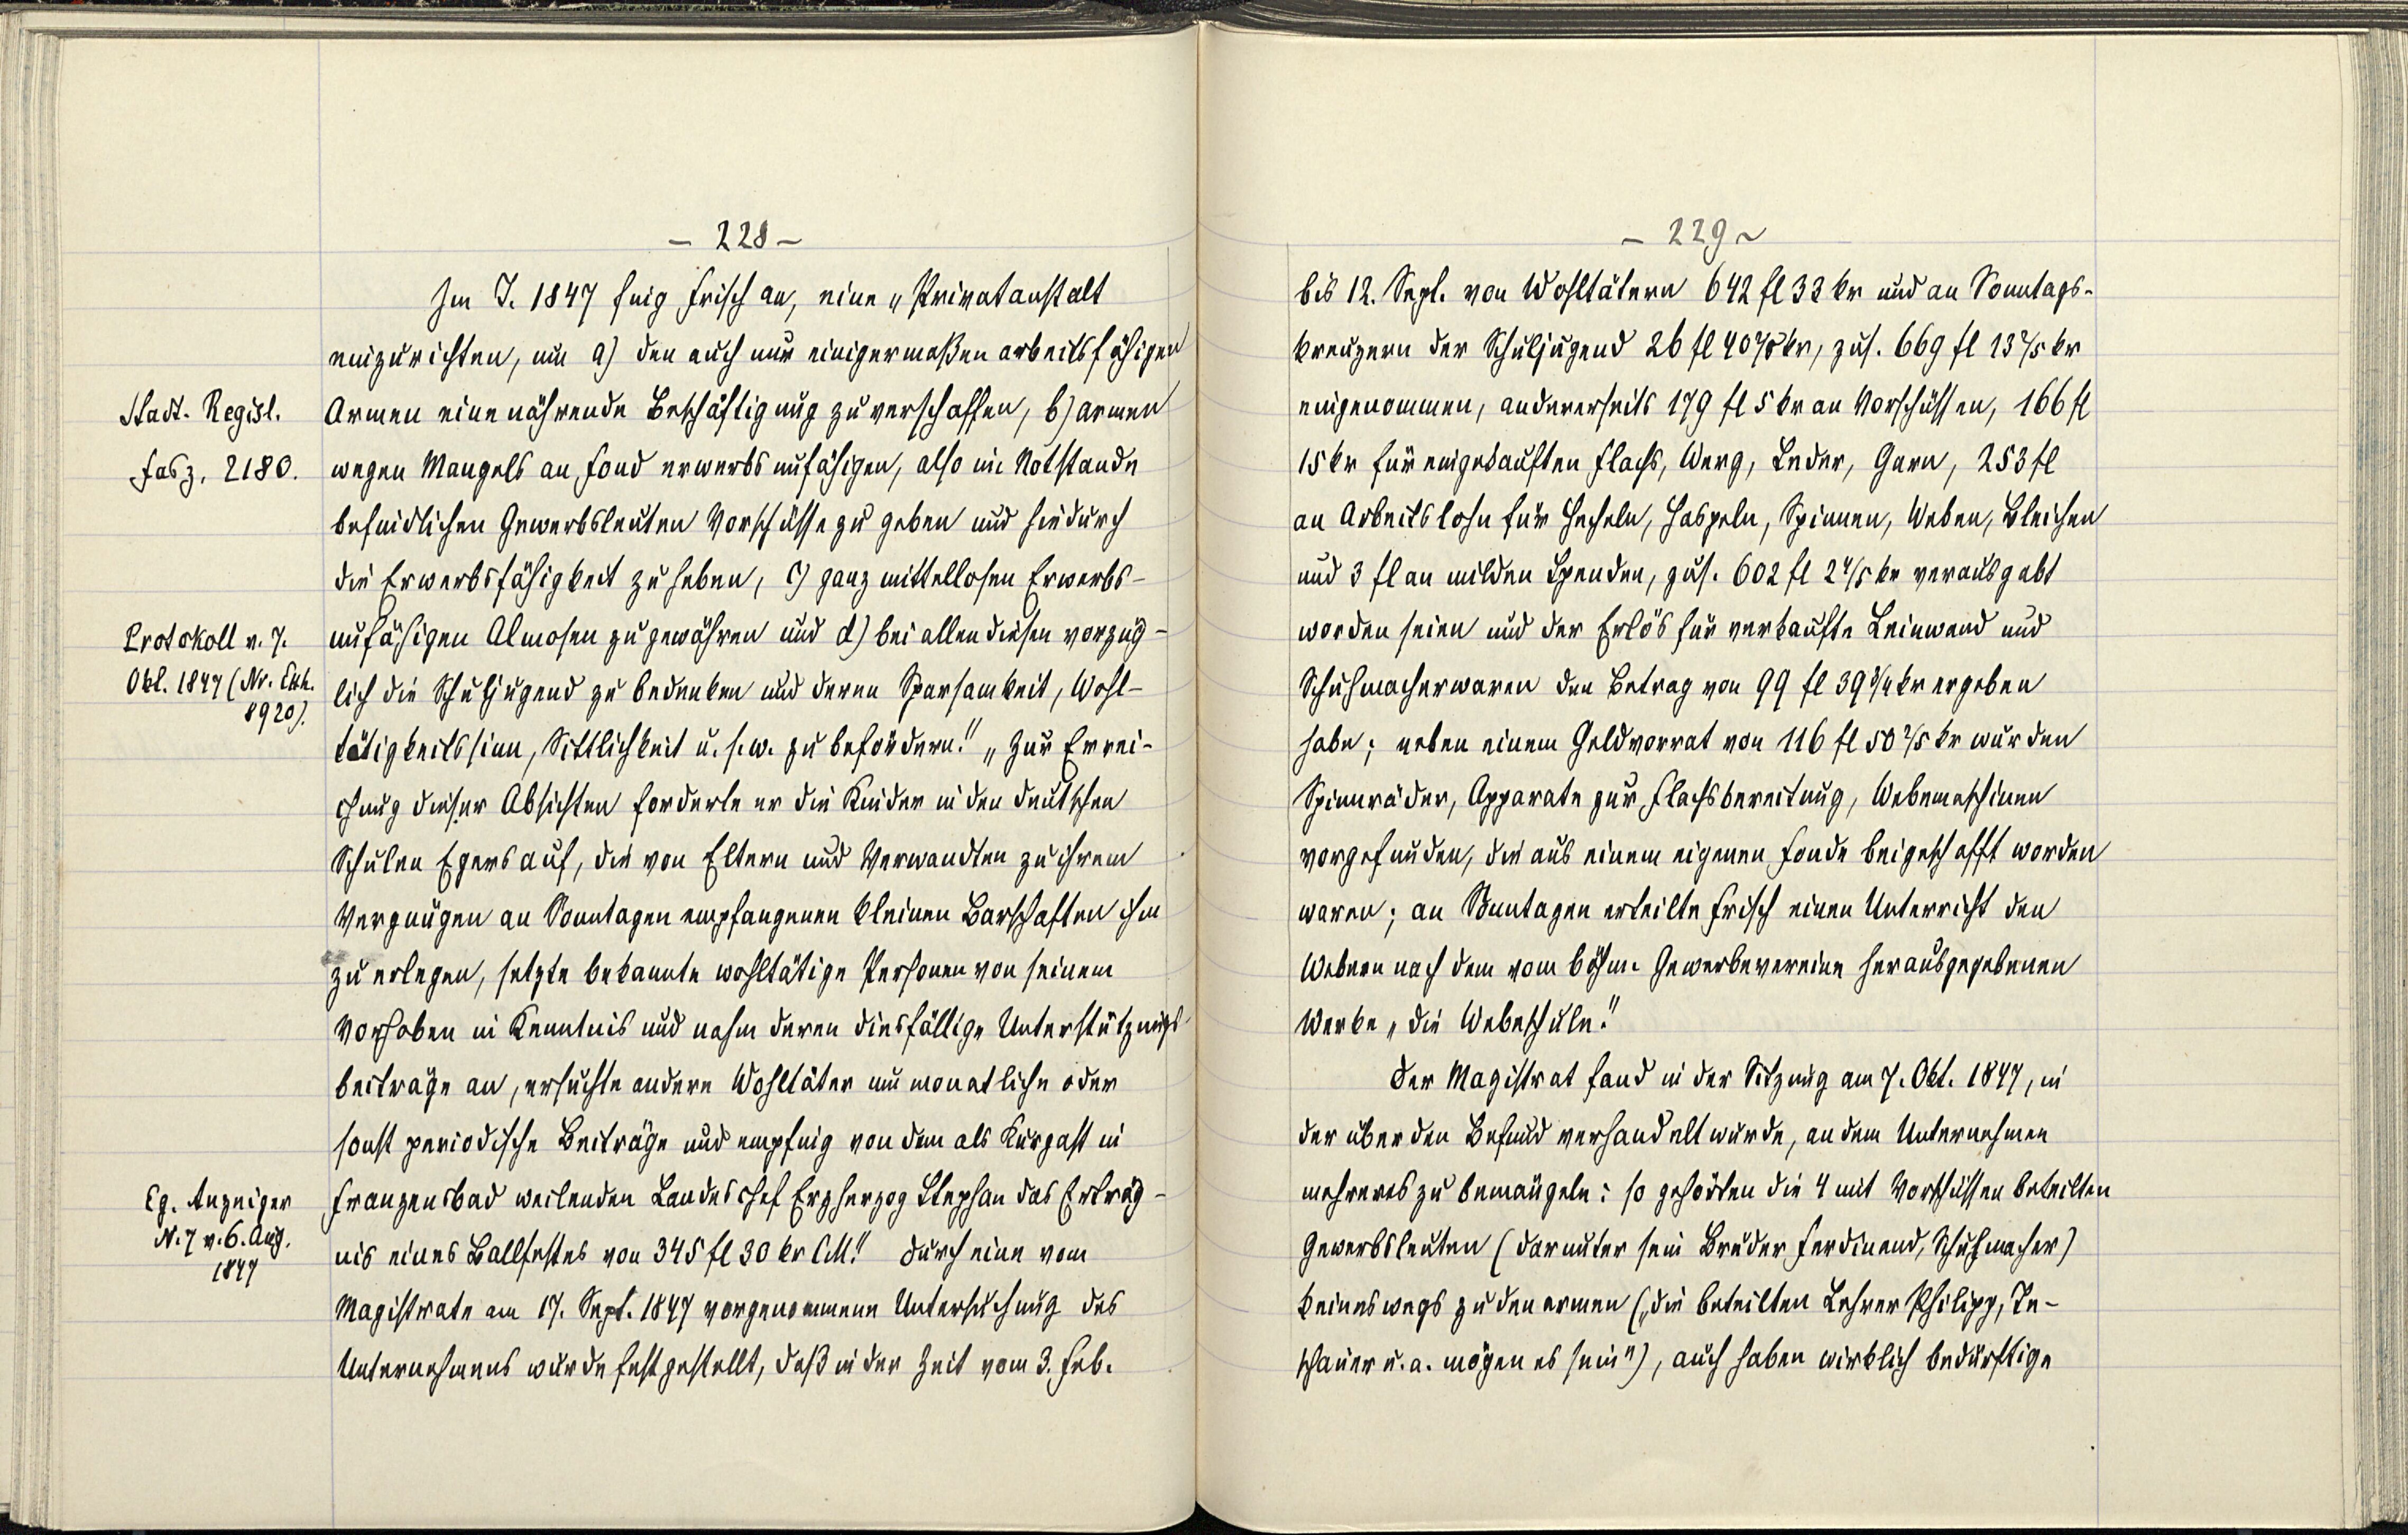 - 228 -
Im J. 1847 fing Frisch an, eine „Privatanstalt
einzurichten, um a) den auch nur einigermaßen arbeitsfähigen
Stadt. Regist.
Fasz. 2180.
Armen eine nährende Beschäftigung zu verschaffen, b) armen
wegen Mangels an Fond erwerbsunfähigen, also im Notstande
befindlichen Gewerbsleuten Vorschüsse zu geben und hiedurch
die Erwerbsfähigkeit zu heben, c) ganz mittellosen Erwerbs-
Protokoll v. 7.
Okt. 1847 (Nr. Exh.
8920).
unfähigen Almosen zu gewähren und d) bei allen diesen vorzüg-
lich die Schuljugend zu bedenken und deren Sparsamkeit, Wohl-
tätigkeitssinn, Sittlichkeit u. s. w. zu befördern." „Zur Errei-
chung dieser Absichten forderte er die Kinder in den deutschen
Schulen Egers auf, die von Eltern und Verwandten zu ihrem
Vergnügen an Sonntagen empfangenen kleinen Barschaften ihm
zu erlegen, setzte bekannte wohltätige Personen von seinem
Vorhaben in Kenntnis und nahm deren diesfällige Unterstützungs-
beiträge an, ersuchte andere Wohltäter um monatliche oder
sonst periodische Beiträge und empfing von dem als Kurgast in
Eg. Anzeiger
N. 7 v. 6. Aug.
1847
Franzensbad weilenden Landeschef Erzherzog Stephan das Erträg-
nis eines Ballfestes von 345 fl 30 kr CM." Durch eine vom
Magistrate am 17. Sept. 1847 vorgenommene Untersuchung des
Unternehmens wurde festgestellt, daß in der Zeit vom 3. Feb.
- 229 -
bis 12. Sept. von Wohltätern 642 fl 33 kr und an Sonntags-
kreuzern der Schuljugend 26 fl 40 2/5 kr, zus. 669 fl 13 2/5 kr
eingenommen, andererseits 179 fl 5 kr an Vorschüssen, 166 fl
15 kr für eingekauften Flachs, Werg, Leder, Garn, 253 fl
an Arbeitslohn für Hecheln, Haspeln, Spinnen, Weben, Bleichen
und 3 fl an milden Spenden, zus. 602 fl 2 4/5 kr verausgabt
worden seien und der Erlös für verkaufte Leinwand und
Schuhmacherwaren den Betrag von 99 fl 39 3/4 kr ergeben
habe; neben einem Geldvorrat von 116 fl 50 2/5 kr wurden
Spinnräder, Apparate zur Flachsbereitung, Webemaschinen
vorgefunden, die aus einem eigenen Fonde beigeschafft worden
waren; an Sonntagen erteilte Frisch einen Unterricht den
Webern nach dem vom böhm. Gewerbevereine herausgegebenen
Werke „die Webeschule."
Der Magistrat fand in der Sitzung am 7. Okt. 1847, in
der über den Befund verhandelt wurde, an dem Unternehmen
mehreres zu bemängeln: so gehörten die 4 mit Vorschüssen beteilten
Gewerbsleuten (darunter sein Bruder Ferdinand, Schuhmacher)
keineswegs zu den armen („die beteilten Lehrer Philipp, Te-
schauer u. a. mögen es sein"), auch haben wirklich bedürftige